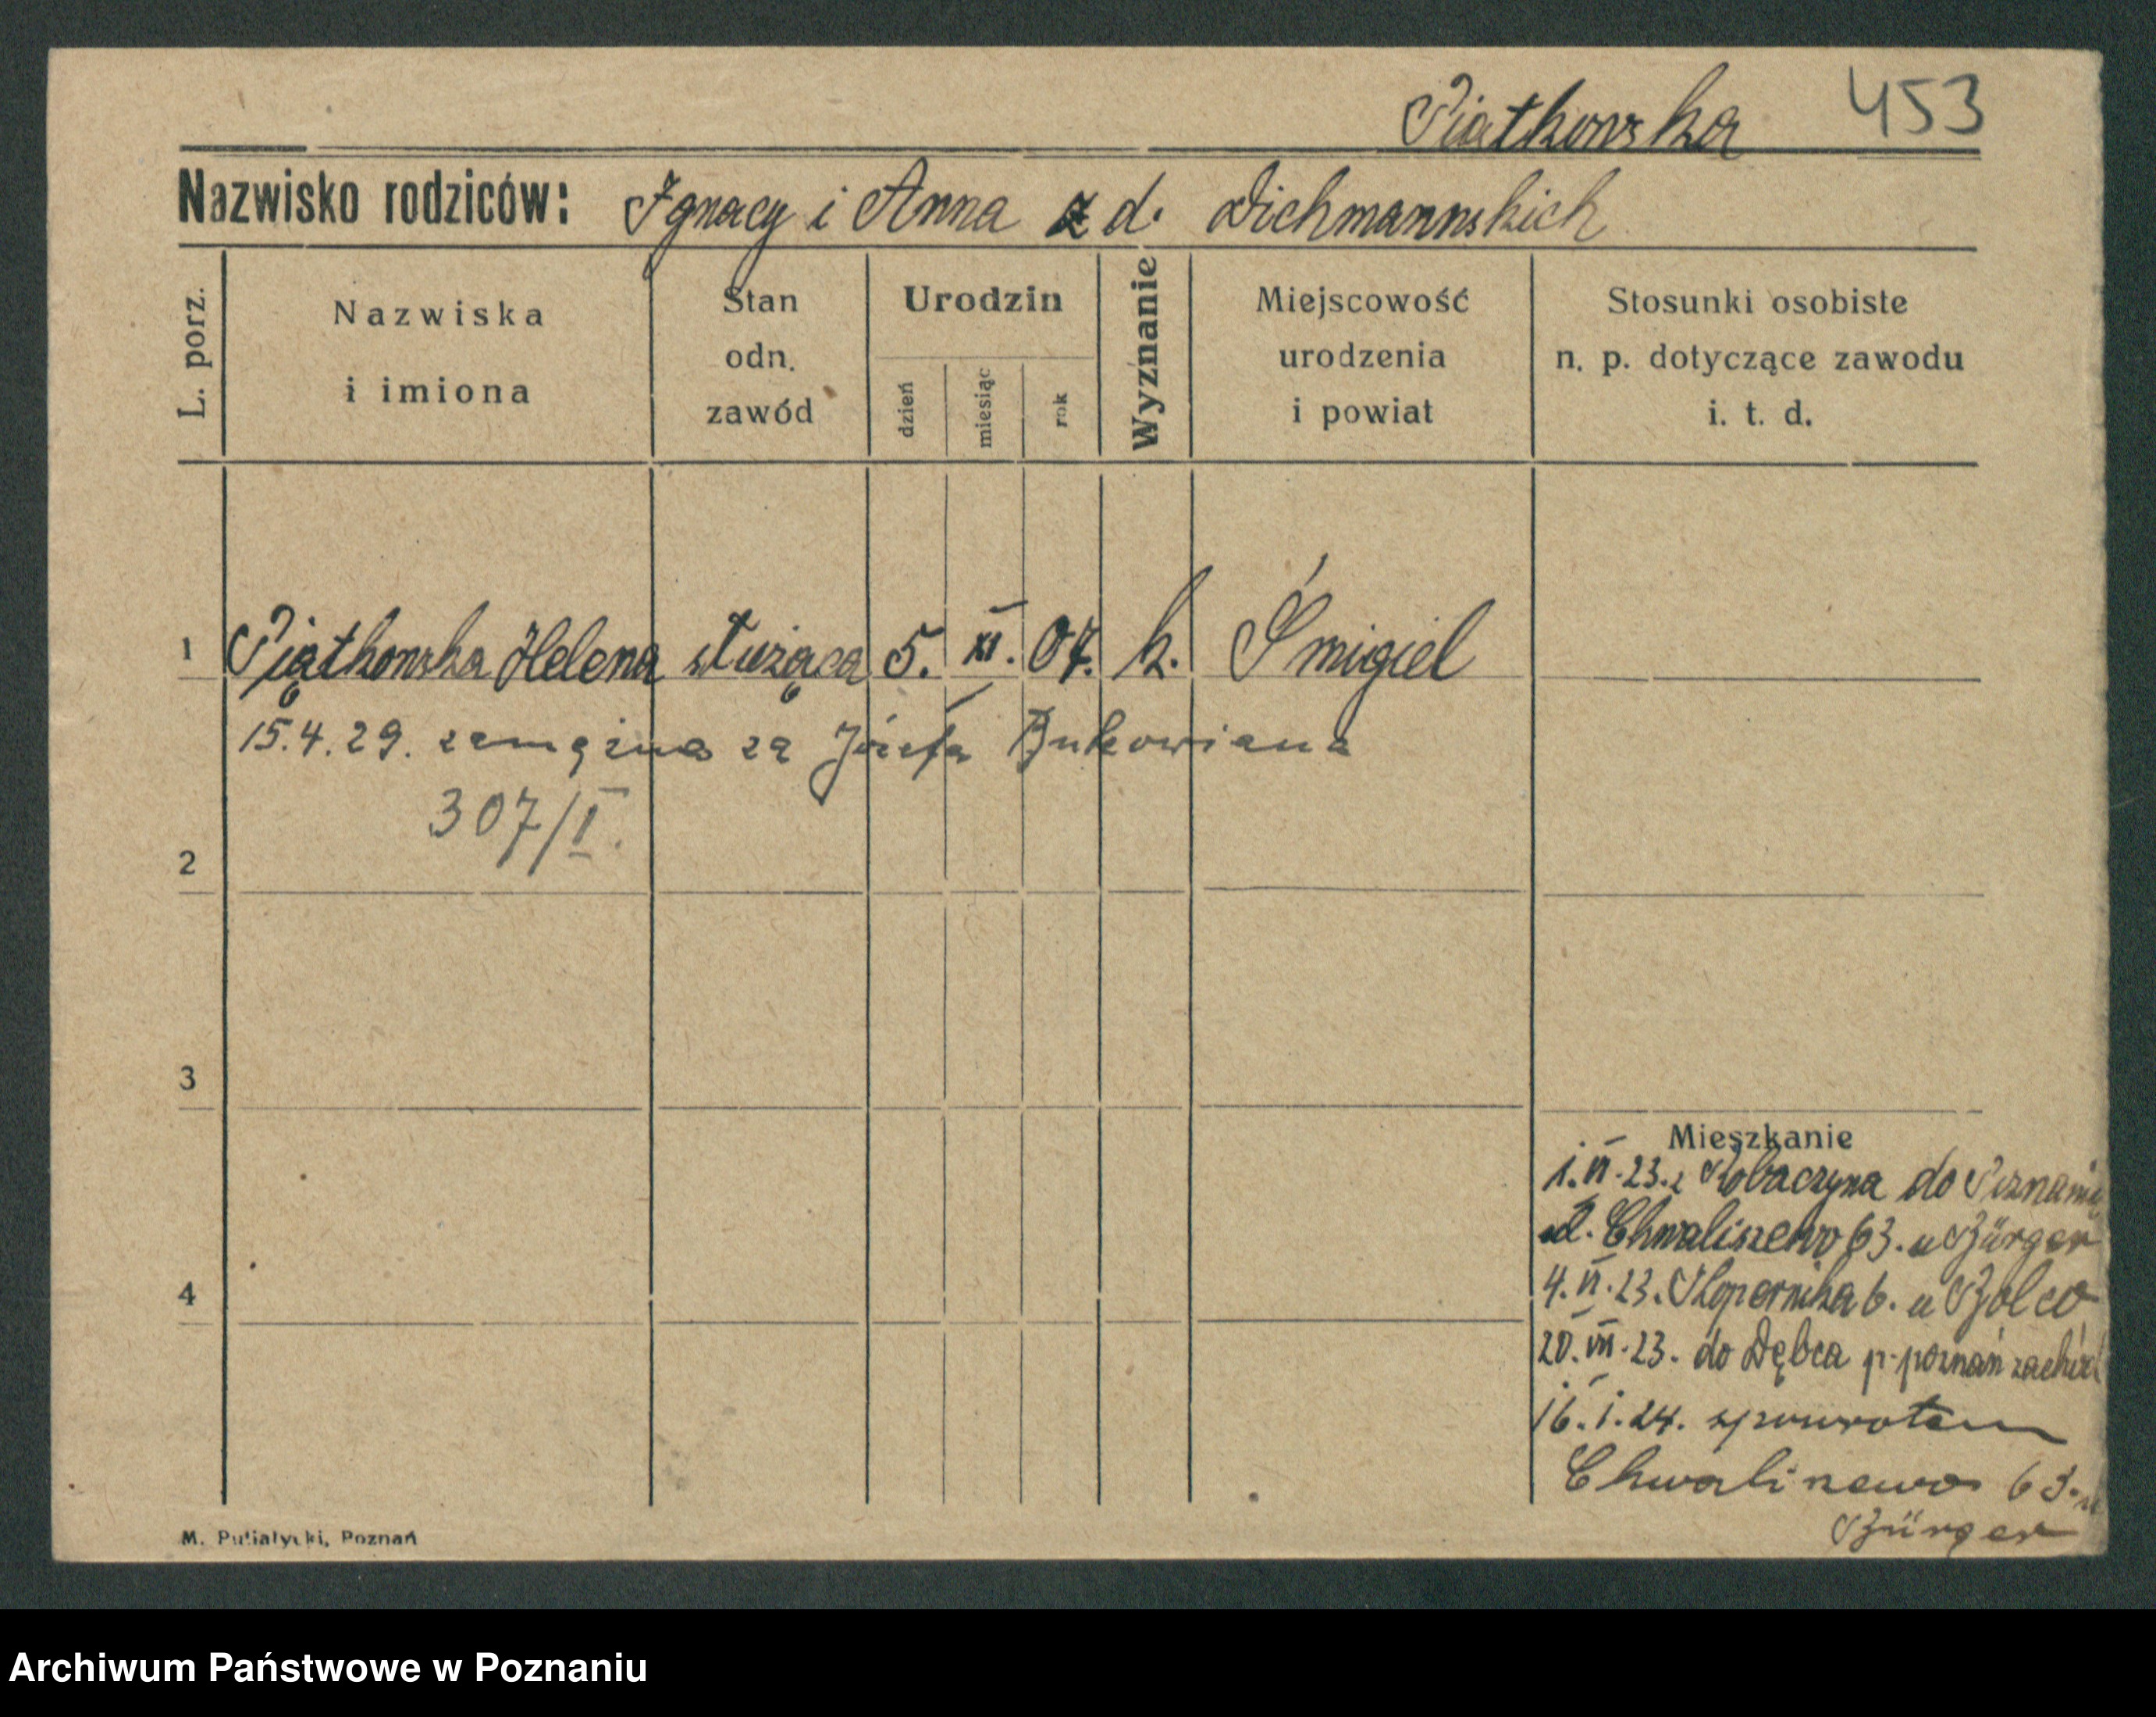 Piatkowska 453
Nazwisko rodziców: Ignacy i Anna z d. Dichmannskich
L. porz.
Nazwiska
i imiona
Stan
odn.
zawód
Urodzin
dzień
miesiąc
rok
Wyznanie
Miejscowość
urodzenia
i powiat
Stosunki osobiste
n. p. dotyczące zawodu
i. t. d.
1 Piątkowska Helena służąca 5. XI. 07. k. Śmigiel
15.4.29. zamężna za Józefa Bukowiana
307/I.
2
3
4
Mieszkanie
1. VI. 23. z do Poznania
ul. Chwaliszewo 63. u Bürger
4. VI. 23. Kopernika 6. u
20. VII. 23. do Dębca p. poznań zachód
16. I. 24. spowrotem
Chwaliszewo 63. u
Bürger
M. Putiatycki, Poznań
Archiwum Państwowe w Poznaniu